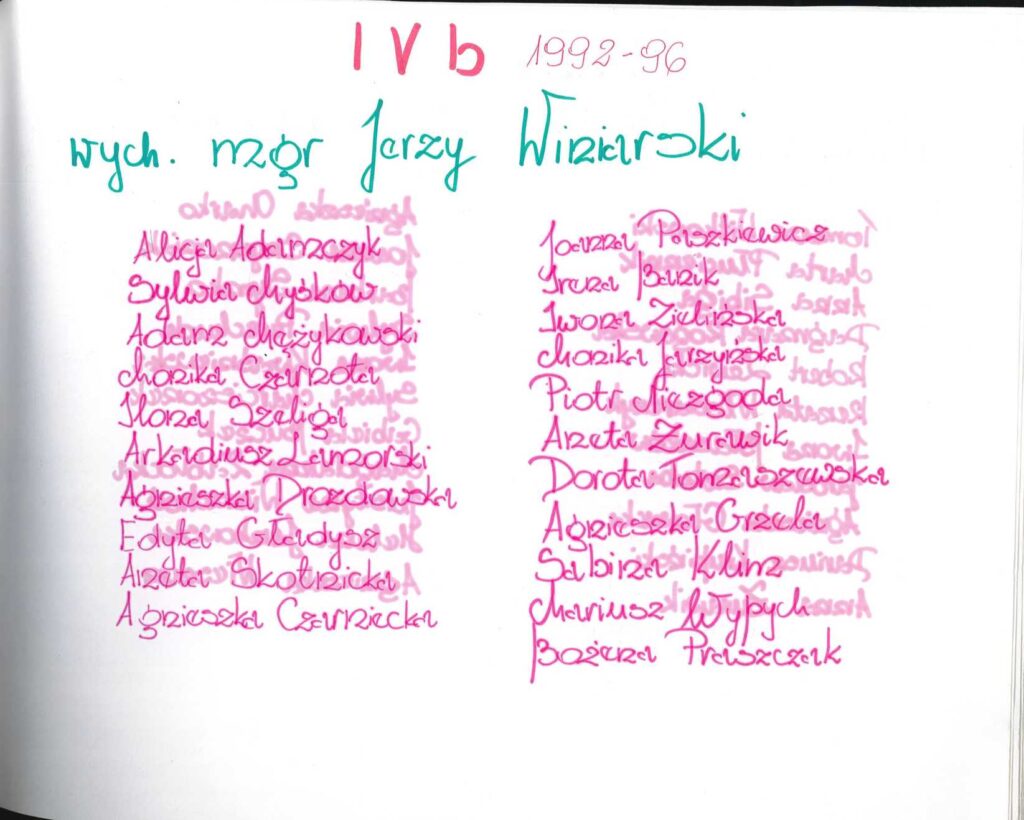 IV b 1992-96
wych. mgr Jerzy Winiarski
Alicja Adamczyk
Sylwia Myśków
Adam Mężykowski
Monika Czarnota
Ilona Szeliga
Arkadiusz Lamorski
Agnieszka Drozdowska
Edyta Gładysz
Aneta Skotnicka
Agnieszka Czarniecka
Joanna Paszkiewicz
Irena Banik
Iwona Zielińska
Monika Jarzyńska
Piotr Niezgoda
Aneta Żurawik
Dorota Tomaszewska
Agnieszka Grzela
Sabina Klim
Mariusz Wypych
Bożena Praszczak